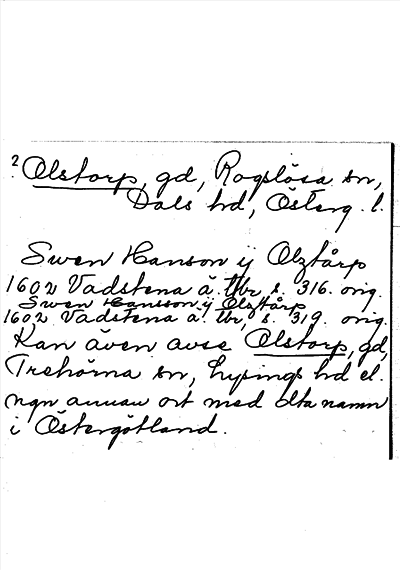 ? Olstorp, gd, Rogslösa sn,
Dals hd, Österg. l.
Swen Hanson ij Olztårp
1602 Vadstena ä. tbr, s. 316. orig.
Swen Hansson ij Olztårp
1602 Vadstena ä. tbr, s. 319. orig.
Kan även avse Olstorp, gd,
Trehörna sn, Lysings hd el.
ngn annan ort med dta namn
i Östergötland.